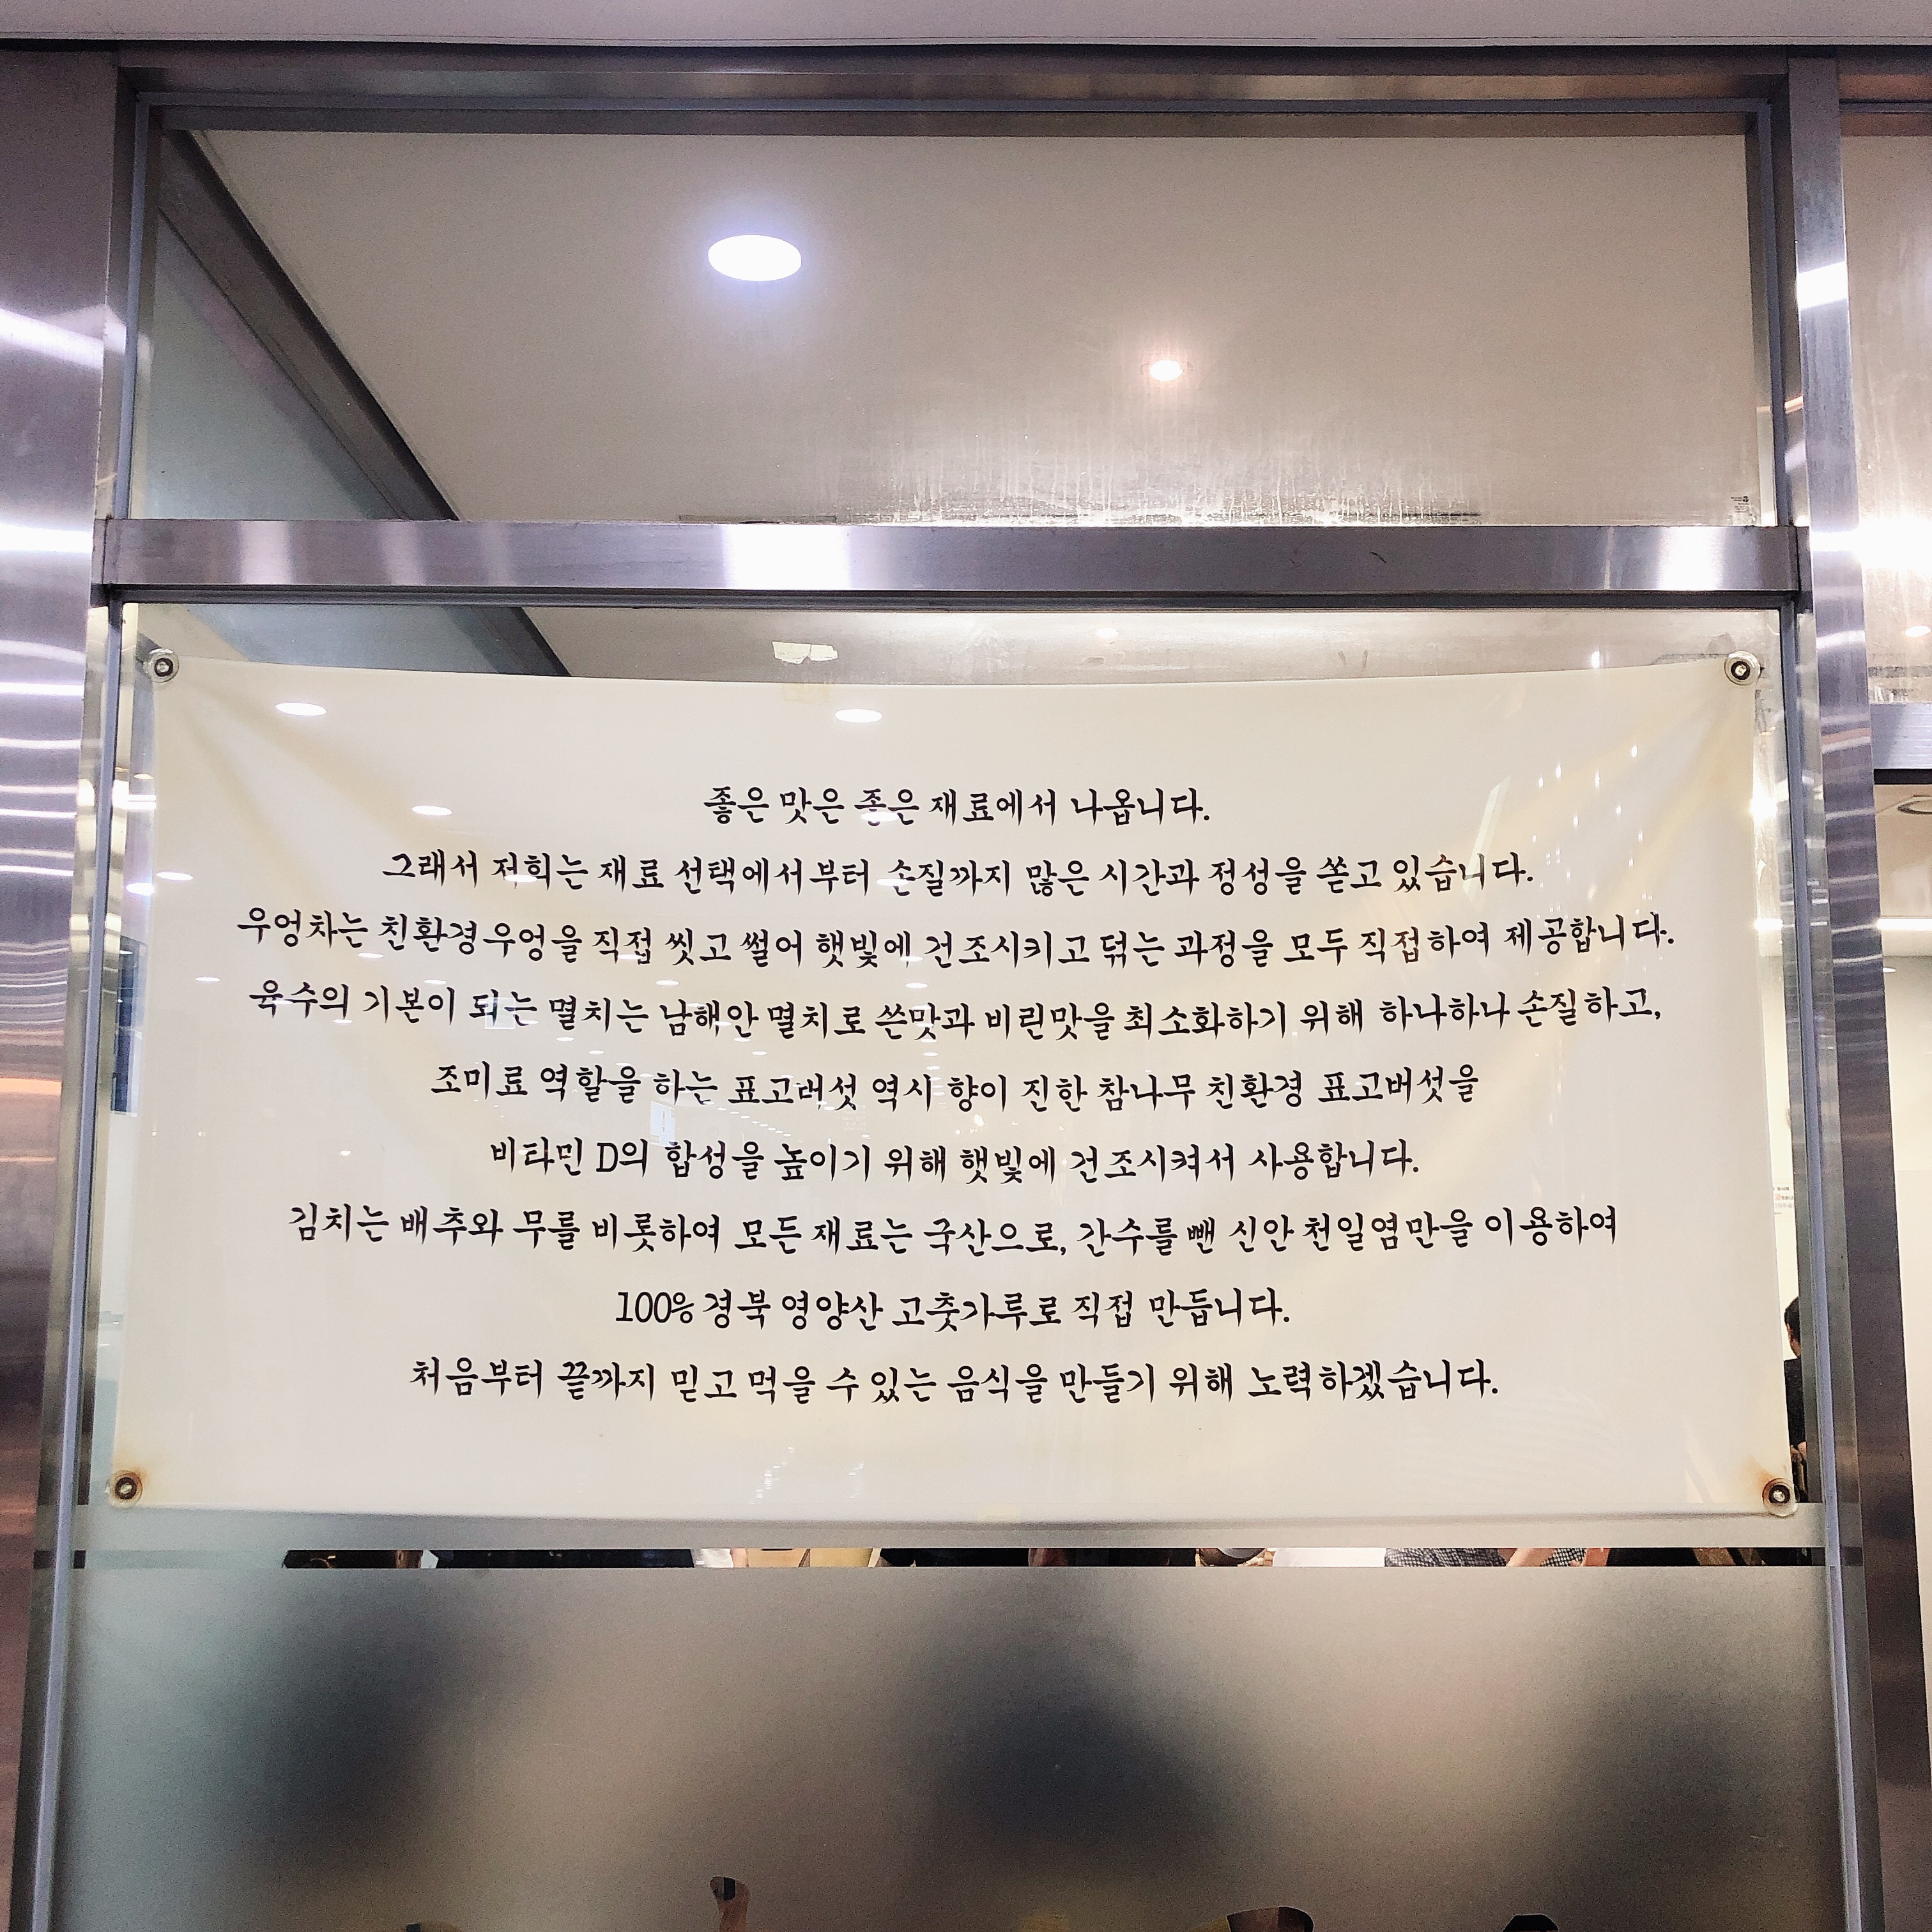 좋은 맛은 좋은 재료에서 나옵니다.
그래서 저희는 재료 선택에서부터 손질까지 많은 시간과 정성을 쏟고 있습니다.
우엉차는 친환경우엉을 직접 씻고 썰어 햇빛에 건조시키고 덖는 과정을 모두 직접하여 제공합니다.
육수의 기본이 되는 멸치는 남해안 멸치로 쓴맛과 비린맛을 최소화하기 위해 하나하나 손질하고,
조미료 역할을 하는 표고버섯 역시 향이 진한 참나무 친환경 표고버섯을
비타민 D의 합성을 높이기 위해 햇빛에 건조시켜서 사용합니다.
김치는 배추와 무를 비롯하여 모든 재료는 국산으로, 간수를 뺀 신안 천일염만을 이용하여
100% 경북 영양산 고춧가루로 직접 만듭니다.
처음부터 끝까지 믿고 먹을 수 있는 음식을 만들기 위해 노력하겠습니다.